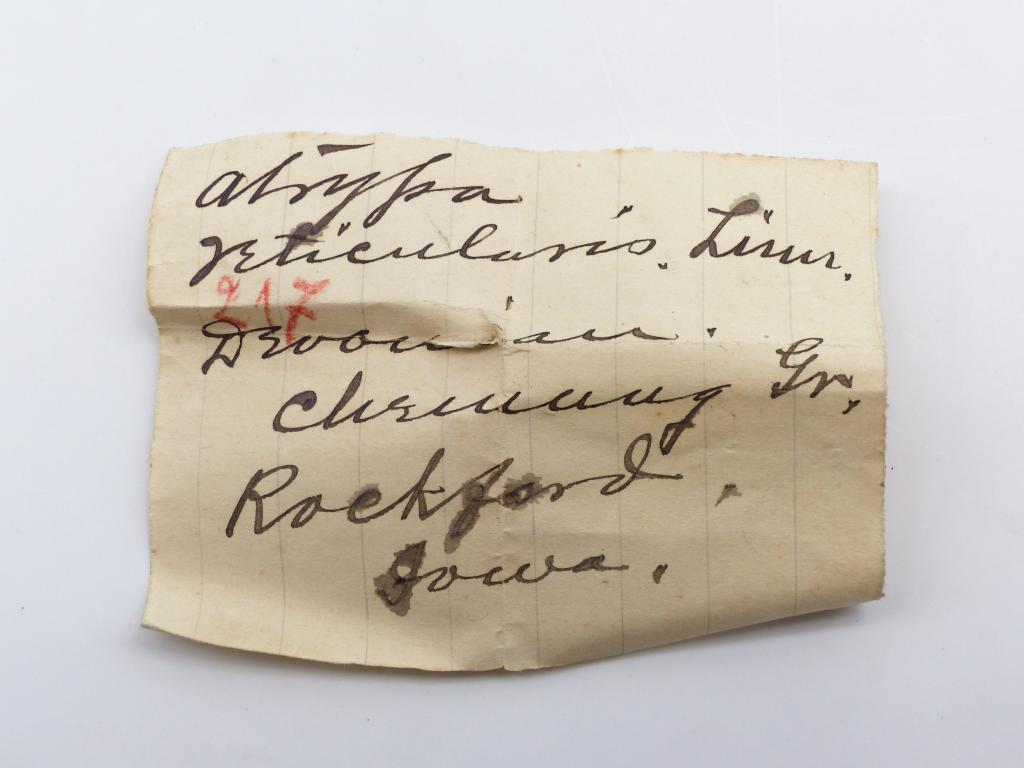 Atrypa
reticularis. Linn.
217
Devonian.
Chemung Gr.
Rockford,
Iowa.